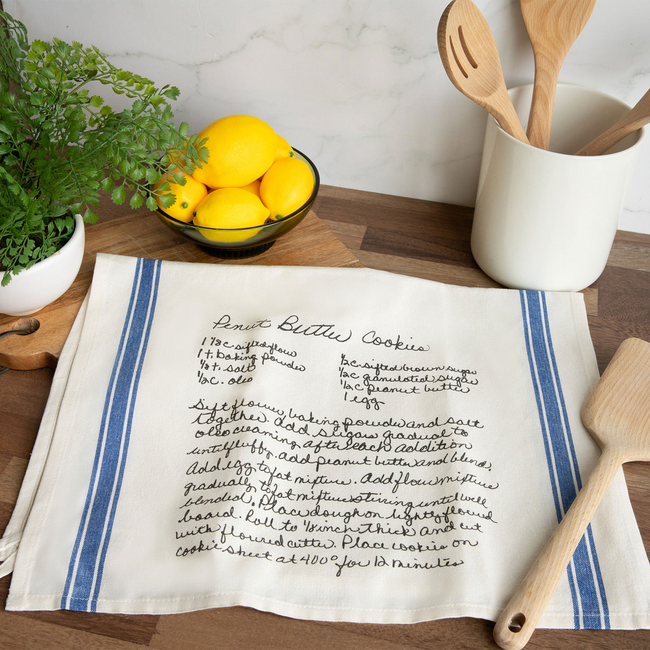 Peanut Butter Cookies
1 1/2 c sifted flour
1 t. baking powder
1/4 t. salt
1/2 c. oleo
1/2 c sifted brown sugar
1/2 c granulated sugar
1/2 c peanut butter
1 egg
Sift flour, baking powder and salt
together. Add sugars gradual to
oleo creaming after each addition
until fluffy. add peanut butter and blend.
Add egg to fat mixture. Add flour mixture
gradually to fat mixture stirring until well
blended. Place dough on lightly floured
board. Roll to 1/8 inch thick and cut
with floured cutter. Place cookies on
cookie sheet at 400° for 12 minutes